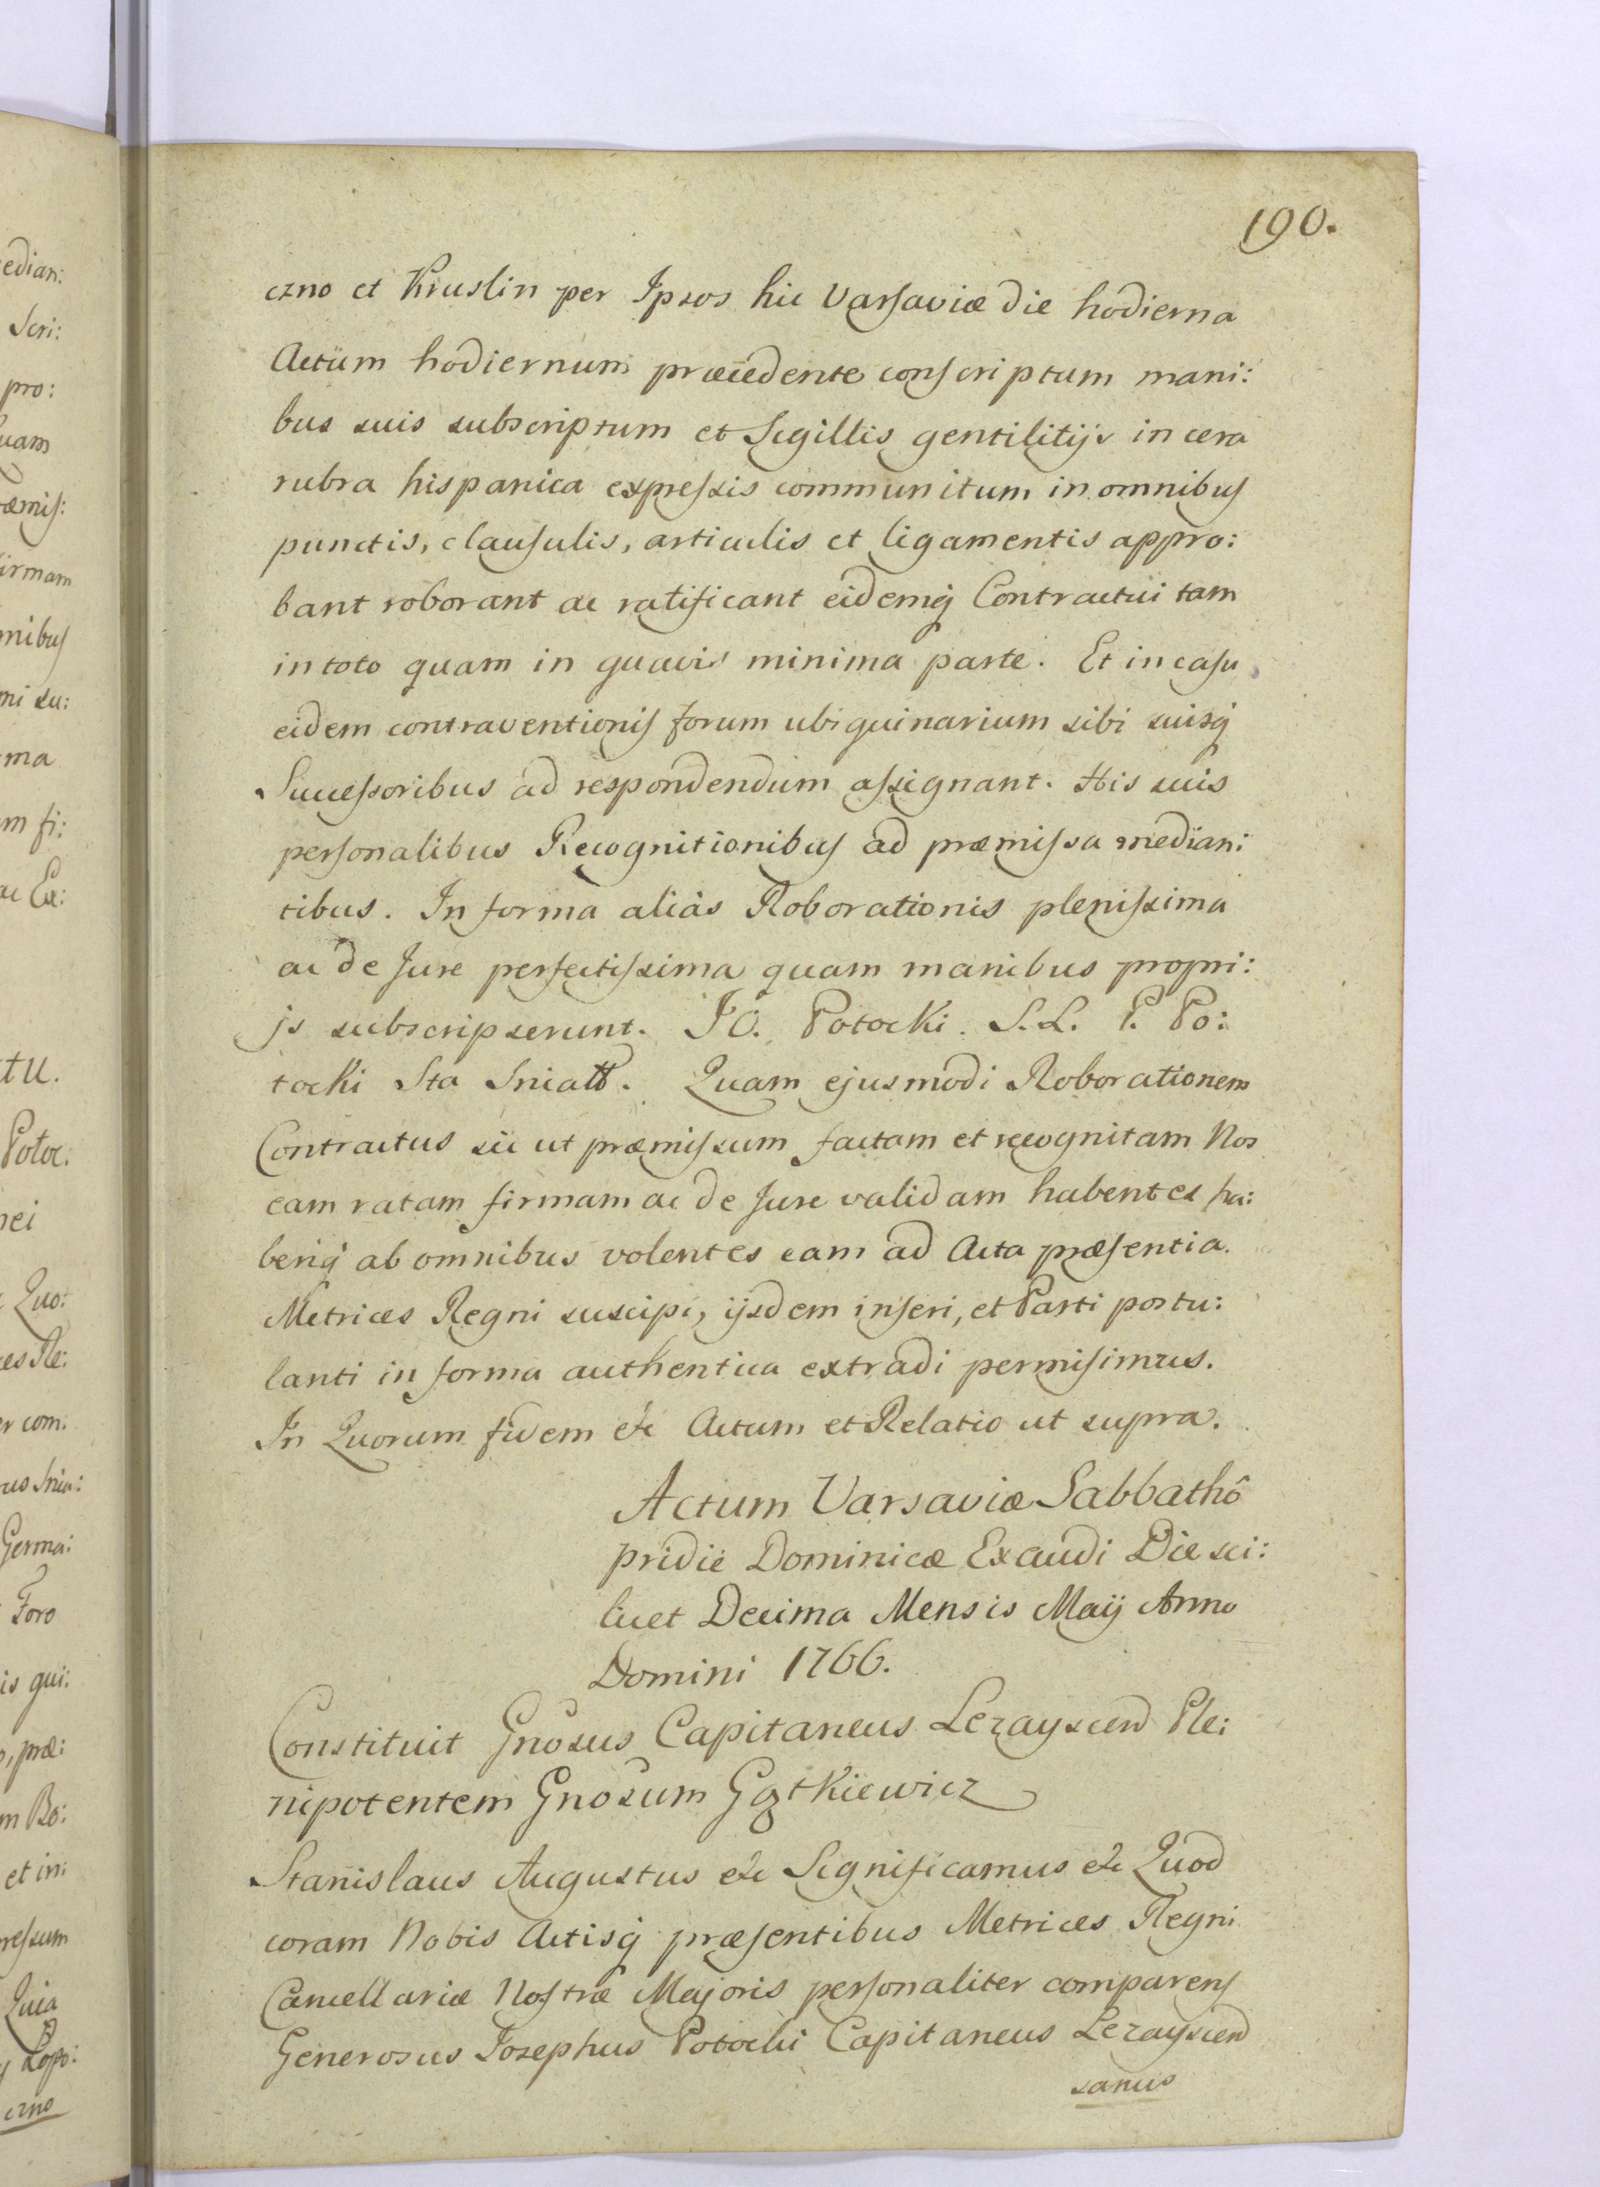 190.
czno et Kruslin per Ipsos hic Varsaviæ die hodierna
Actum hodiernum præcedente conscriptum mani:
bus suis subscriptum et Sigillis gentilitijs in cera
rubra hispanica expressis communitum in omnibus
punctis, clausulis, articulis et ligamentis appro:
bant roborant ac ratificant eidemq Contractui tam
in toto quam in quavis minima parte. Et in casu
eidem contraventionis forum ubiquinarium sibi suisq
Successoribus ad respondendum assignant. His suis
personalibus Recognitionibus ad præmissa median:
tibus. In forma aliàs Roborationis plenissima
ac de Jure perfectissima quam manibus propri:
js subscripserunt. JO. Potocki. S.L. P. Po:
tocki Sta Sniatt. Quam ejusmodi Roborationem
Contractus sic ut præmissum factam et recognitam Nos
eam ratam firmam ac de Jure validam habentes ha:
beriq ab omnibus volentes eam ad Acta præsentia
Metrices Regni suscipi, ijsdem inseri, et Parti postu:
lanti in forma authentica extradi permisimus.
In Quorum fidem etc Actum et Relatio ut supra.
Actum Varsaviæ Sabbathô
pridie Dominicæ Exaudi Die sci:
licet Decima Mensis Maij Anno
Domini 1766.
Constituit Gnosus Capitaneus Lezayscen Ple:
nipotentem Gnosum Gątkiewicz
Stanislaus Augustus etc Significamus etc Quod
coram Nobis Actisq præsentibus Metrices Regni
Cancellariæ Nostræ Majoris personaliter comparens
Generosus Josephus Potocki Capitaneus Lezayscen
sanus
edian:
Scri:
pro:
uam
ræmis:
irmam
nibus
ni su:
ma
m fi:
ac Ex:
tu.
Potoc:
nei
Quo:
es Re:
r com.
us Snia:
Germa:
Foro
is qui:
, præ:
m Bo:
et in:
ressum
Quia
Lopo:
czno